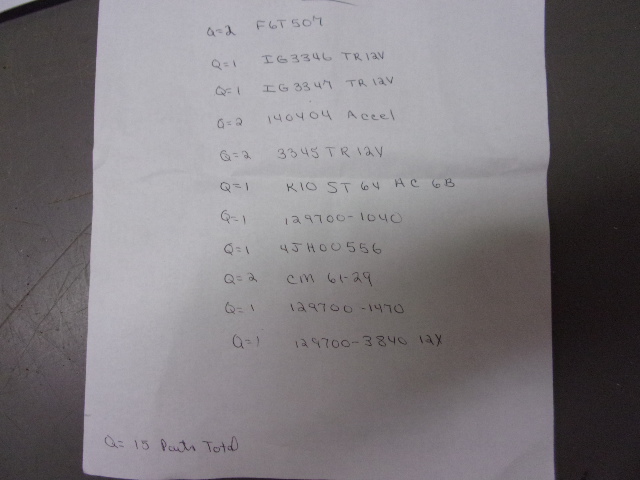 Q=2 F6T507
Q=1 IG3346 TR12V
Q=1 IG3347 TR12V
Q=2 140404 Accel
Q=2 3345TR12V
Q=1 K10 5T 64 HC 6B
Q=1 129700-1040
Q=1 4JH00556
Q=2 CM 61-29
Q=1 129700-1470
Q=1 129700-3840 12X
Q=15 Parts Total